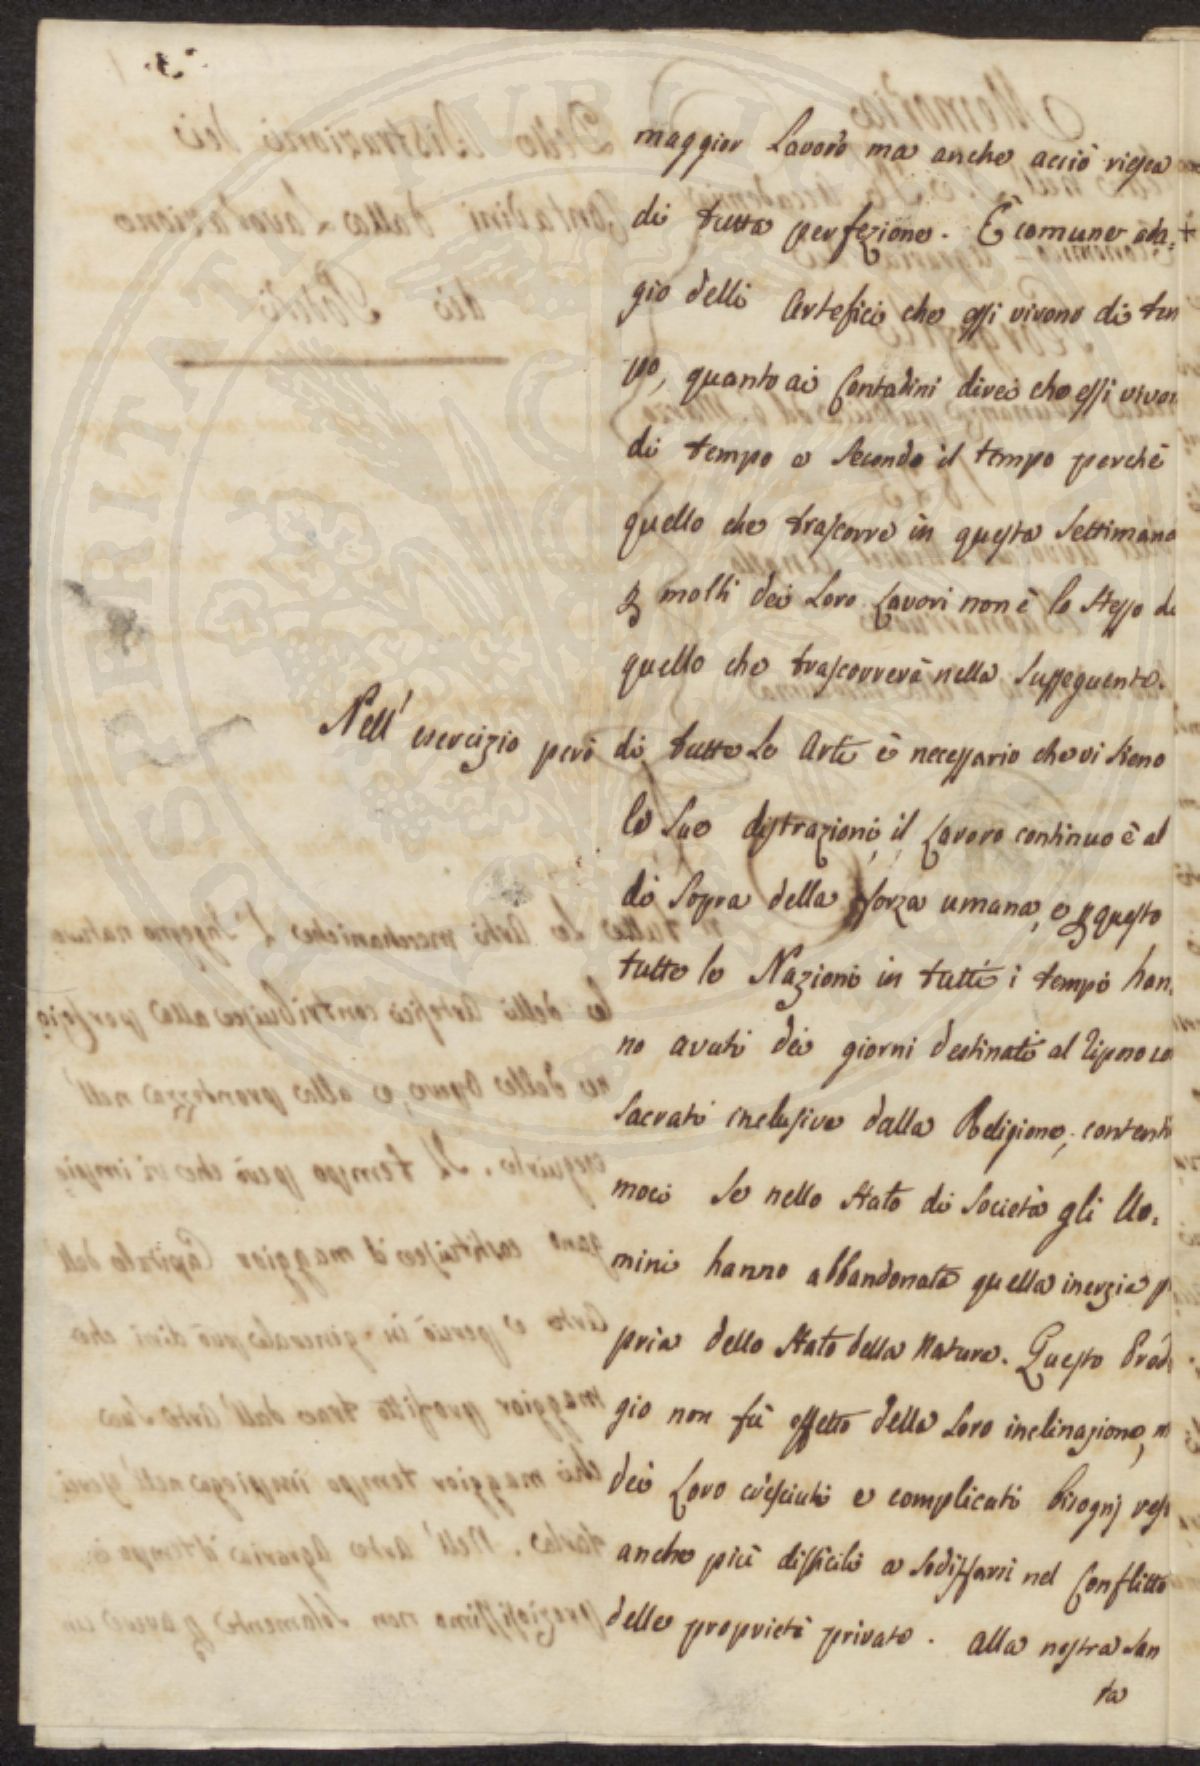 maggior Lavoro ma anche acciò riesca
di tutta perfezione. È comune ada,
gio delli Artefici che essi vivono di tem
po, quanto ai Contadini direi che essi vivon
di tempo e secondo il tempo perchè
quello che trascorre in questa Settimana
p molti dei Loro Lavori non è lo stesso di
quello che trascorrerà nella susseguente.
Nell' esercizio però di tutte Le Arti è necessario che vi sieno
le sue distrazioni, il Lavoro continuo è al
di sopra della forza umana, e p questo
tutte le Nazioni in tutti i tempi han,
no avuti dei giorni destinati al riposo co
sacrati inclusive dalla Religione; contenti
moci se nello stato di Società gli Uo,
mini hanno abbandonata quella inerzia p
pria dello stato della Natura. Questo Prodi
gio non fù effetto della Loro inclinazione, m
dei Loro cresciuti e complicati bisognj resi
anche più difficili a sodisfarsi nel Conflitto
delle proprietà private. Alla nostra San
ta